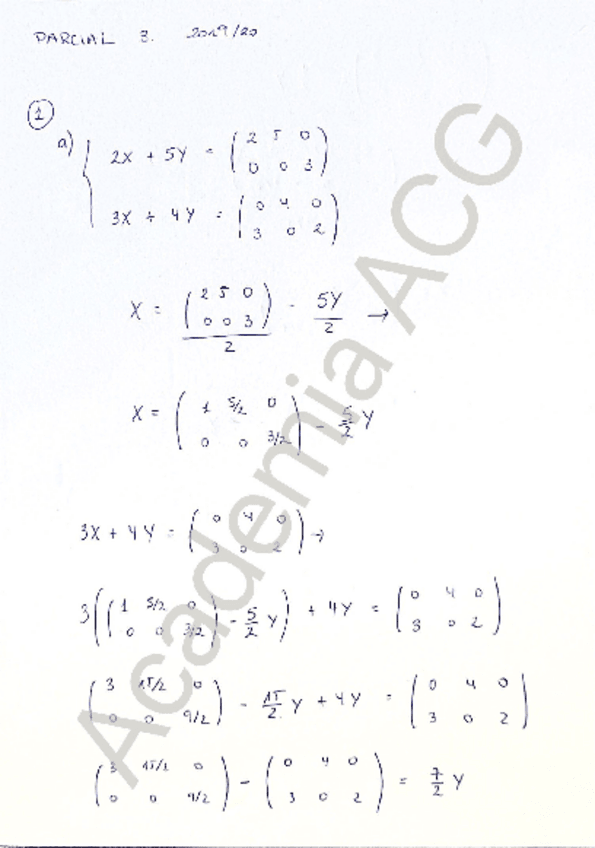 PARCIAL 3. 2019/20
1
a) { 2X + 5Y = ( 2 5 0 / 0 0 3 )
3X + 4Y = ( 0 4 0 / 3 0 2 )
X = ( 2 5 0 / 0 0 3 ) / 2 - 5Y / 2 →
X = ( 1 5/2 0 / 0 0 3/2 ) - 5/2 Y
3X + 4Y = ( 0 4 0 / 3 0 2 ) →
3 ( ( 1 5/2 0 / 0 0 3/2 ) - 5/2 Y ) + 4Y = ( 0 4 0 / 3 0 2 )
( 3 15/2 0 / 0 0 9/2 ) - 15/2 Y + 4Y = ( 0 4 0 / 3 0 2 )
( 3 15/2 0 / 0 0 9/2 ) - ( 0 4 0 / 3 0 2 ) = 7/2 Y
Academia ACG